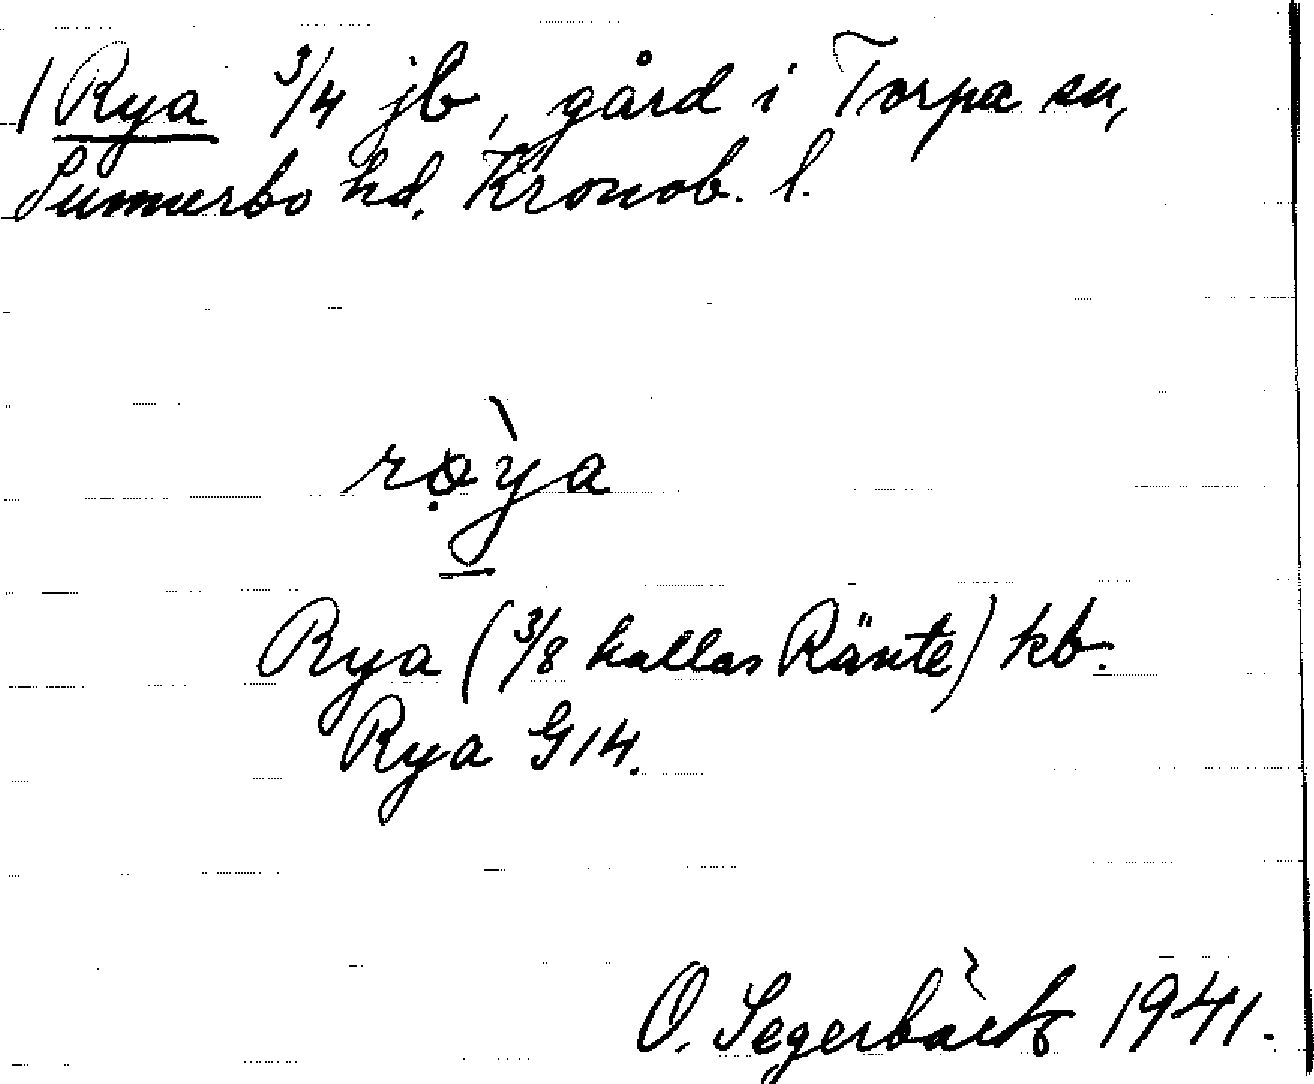 1 Rya 3/4 jb, gård i Torpa sn,
Sunnerbo hd. Kronob. l.
rø̣̀ya
Rya (3/8 kallas Ränte) kb.
Rya G14.
O. Segerbäck 1941.